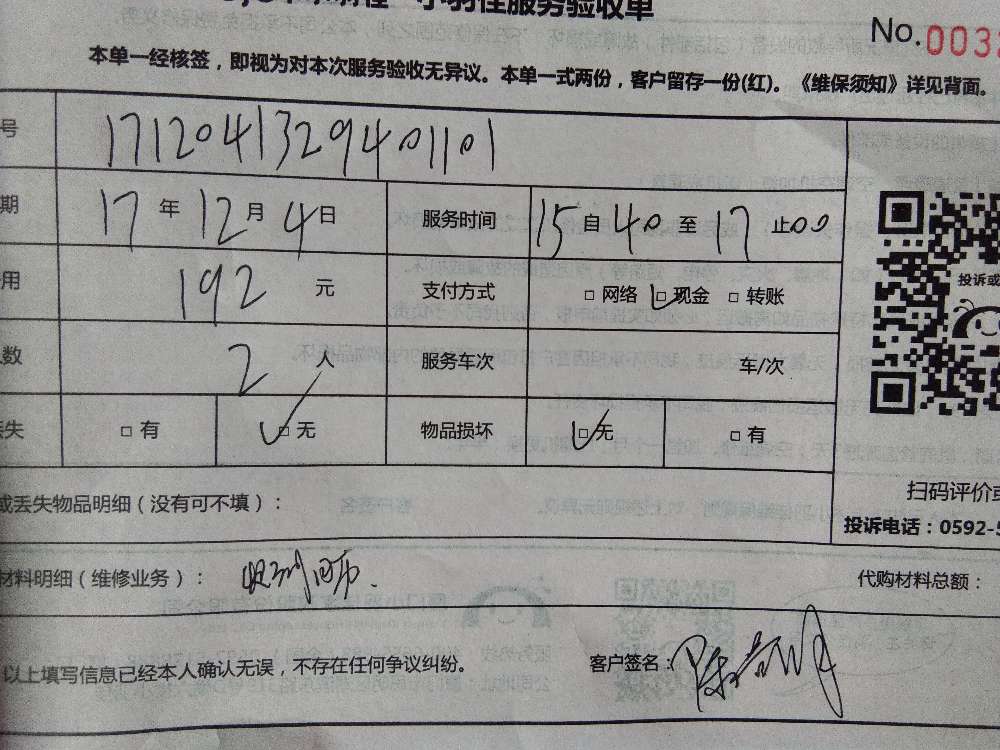 服务验收单
No. 003
本单一经核签，即视为对本次服务验收无异议。本单一式两份，客户留存一份(红)。《维保须知》详见背面。
号 171204132940 1101
期 17 年 12 月 4 日 服务时间 15 自 40 至 17 止 00
用 192 元 支付方式 □ 网络 □ 现金 □ 转账
数 2 人 服务车次 车/次
投诉或
丢失 □ 有 □ 无 物品损坏 □ 无 □ 有
扫码评价或
或丢失物品明细（没有可不填）：
投诉电话：0592-5
材料明细（维修业务）：
代购材料总额：
以上填写信息已经本人确认无误，不存在任何争议纠纷。 客户签名：